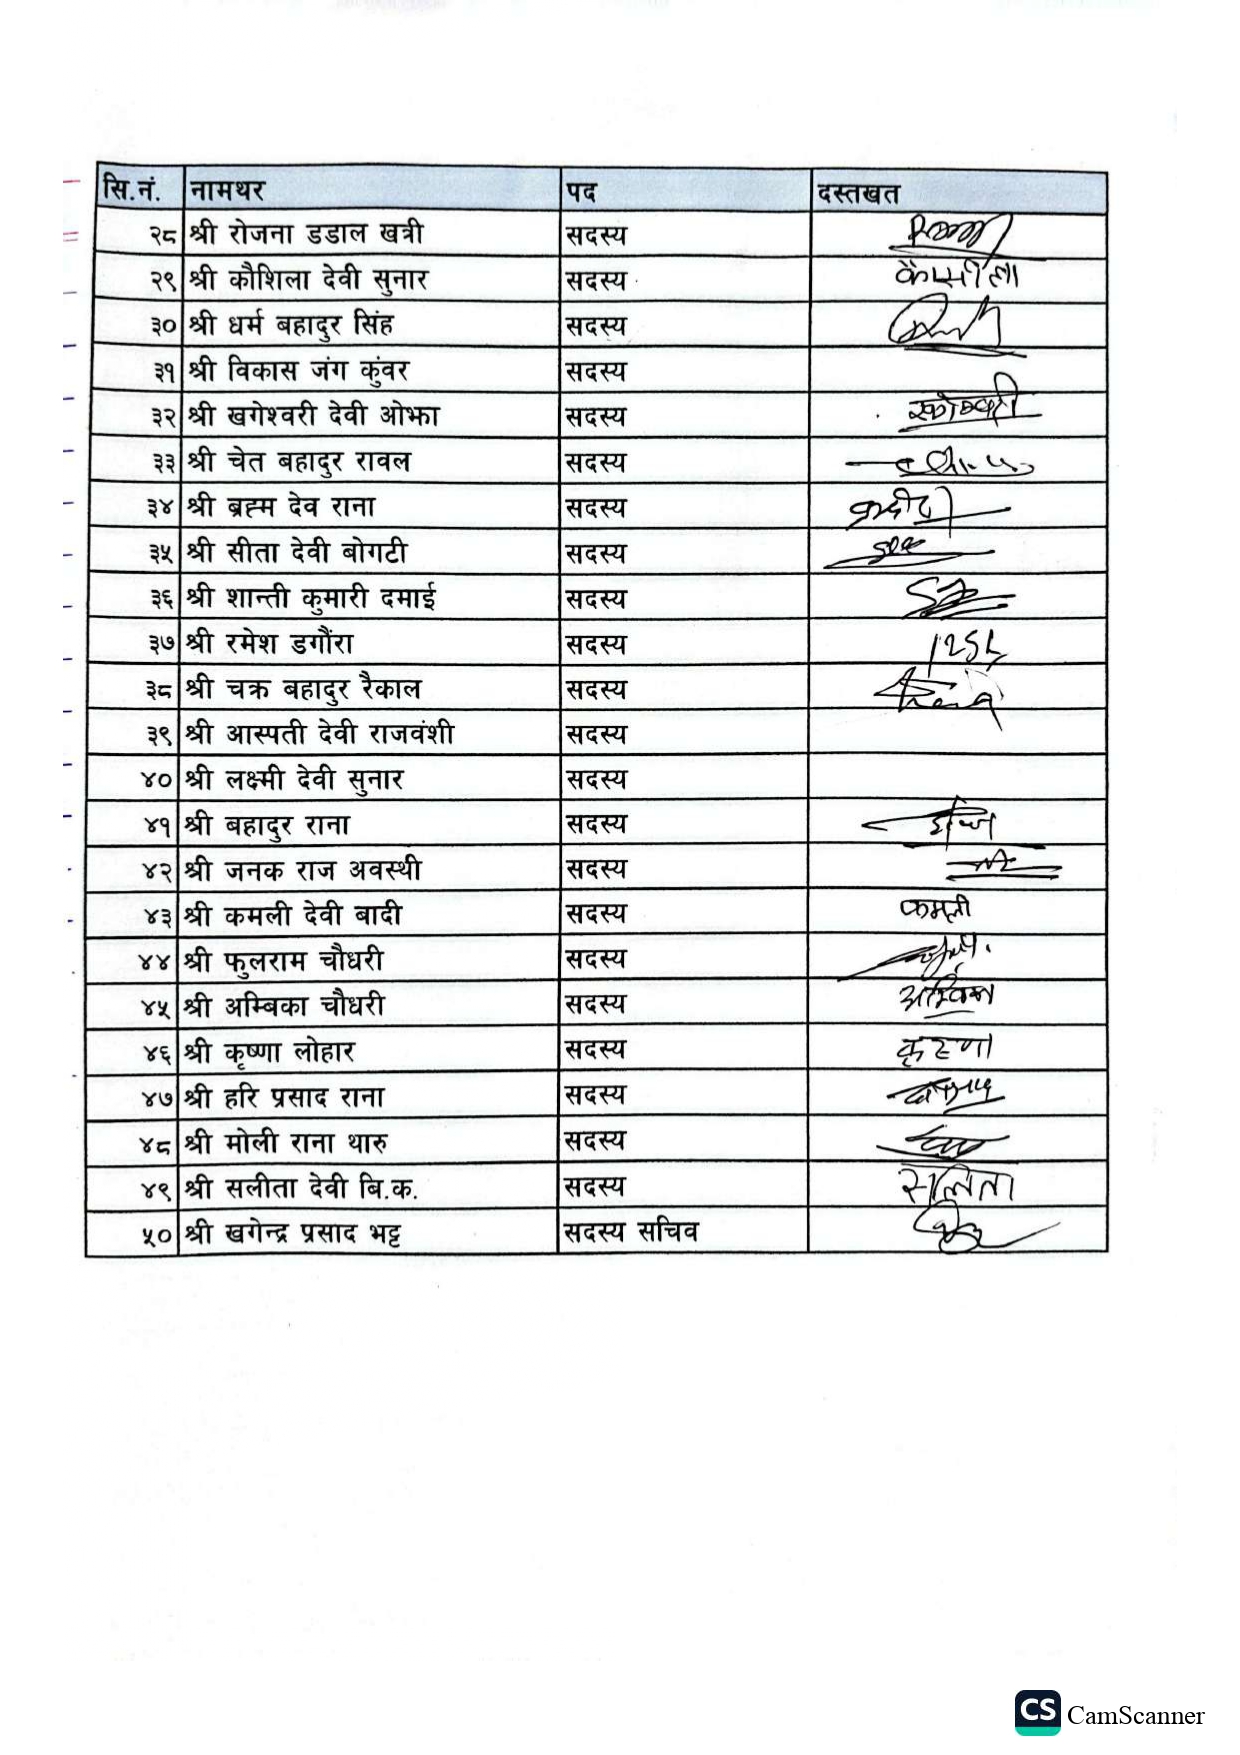 सि.नं. नामथर पद दस्तखत
२८ श्री रोजना डडाल खत्री सदस्य
२९ श्री कौशिला देवी सुनार सदस्य कैसीला
३० श्री धर्म बहादुर सिंह सदस्य
३१ श्री विकास जंग कुंवर सदस्य
३२ श्री खगेश्वरी देवी ओझा सदस्य
३३ श्री चेत बहादुर रावल सदस्य
३४ श्री ब्रह्म देव राना सदस्य
३५ श्री सीता देवी बोगटी सदस्य
३६ श्री शान्ती कुमारी दमाई सदस्य
३७ श्री रमेश डगौंरा सदस्य
३८ श्री चक्र बहादुर रैकाल सदस्य
३९ श्री आस्पती देवी राजवंशी सदस्य
४० श्री लक्ष्मी देवी सुनार सदस्य
४१ श्री बहादुर राना सदस्य
४२ श्री जनक राज अवस्थी सदस्य
४३ श्री कमली देवी बादी सदस्य कमली
४४ श्री फुलराम चौधरी सदस्य
४५ श्री अम्बिका चौधरी सदस्य
४६ श्री कृष्णा लोहार सदस्य कृष्णा
४७ श्री हरि प्रसाद राना सदस्य
४८ श्री मोली राना थारु सदस्य
४९ श्री सलीता देवी बि.क. सदस्य सलिता
५० श्री खगेन्द्र प्रसाद भट्ट सदस्य सचिव
CS CamScanner